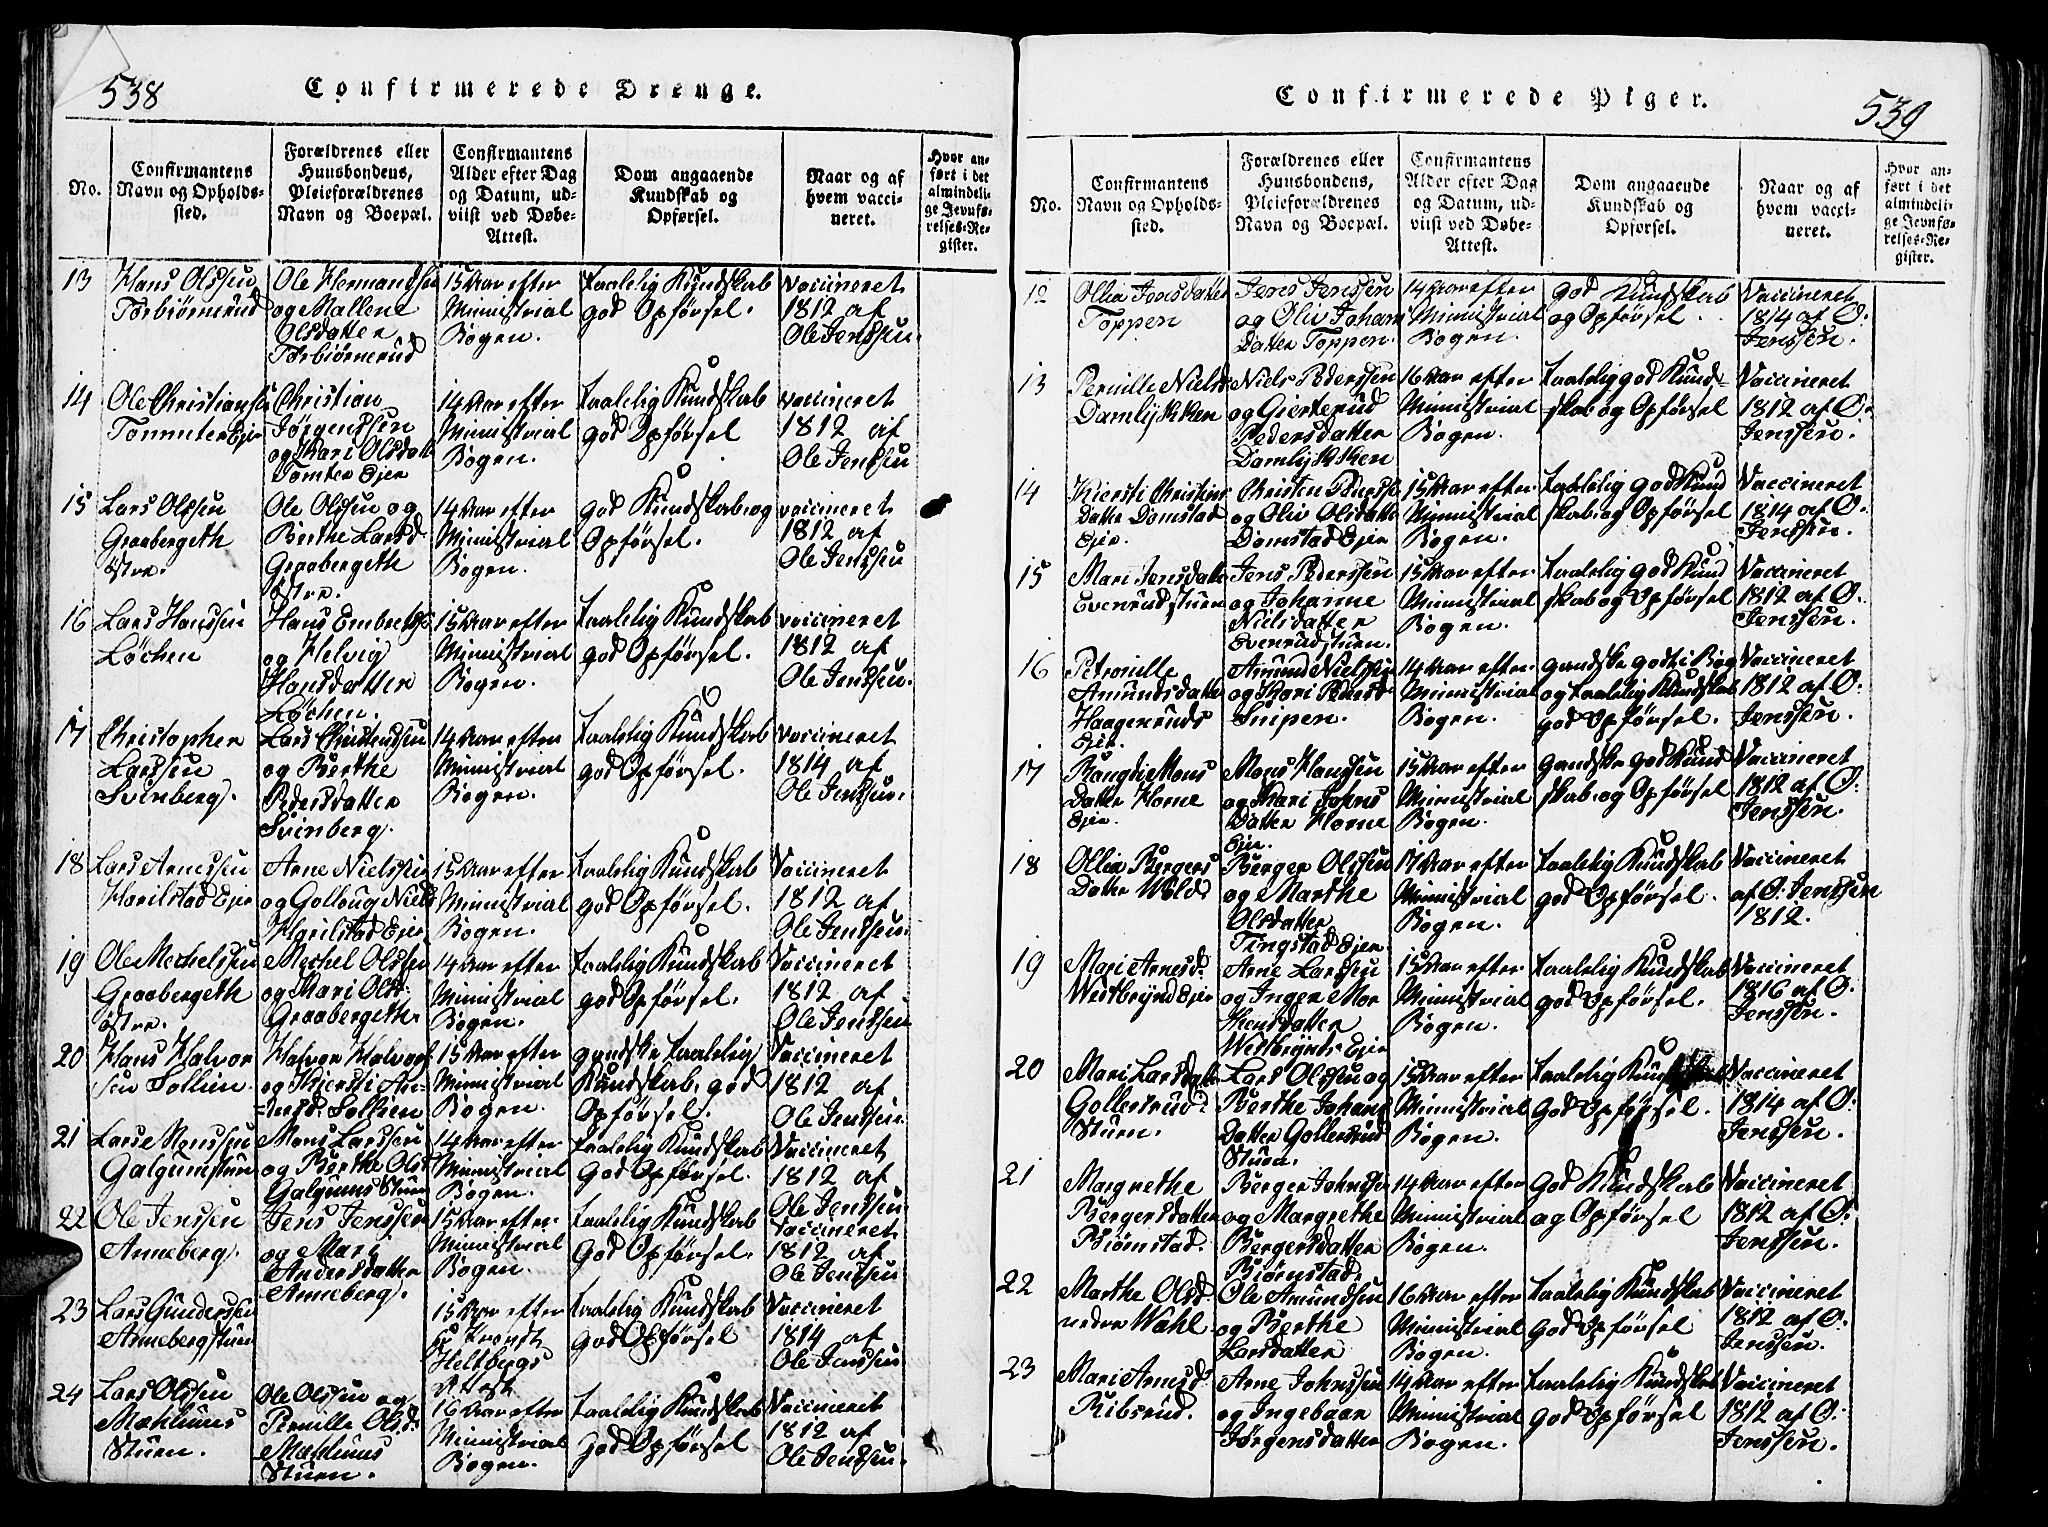 538
Confirmerede Drenge.
No.
Confirmantens Navn og Opholds-sted.
Forældrenes eller Huusbondens, Pleieforældrenes Navn og Boepæl.
Confirmantens Alder efter Dag og Datum, ud-viist ved Døbe-Attest.
Dom angaaende Kundskab og Opførsel.
Naar og af hvem vacci-neret.
Hvor an-ført i det almindeli-ge Jevnfø-relses-Re-gister.
13
Hans Olssen
Torbiørnerud
Ole Hermandsen
og Mallene
Olsdatter
Torbiørnerud
15 Aar efter
Ministerial
Bogen.
taalelig Kundskab
god Opførsel.
vaccineret
1812 af
Ole Jenssen.
14
Ole Christians
Tommter Ejer
Christian
Jørgenssen
og Kari Olsdatt
Tomter Ejer
14 Aar efter
Ministerial
Bogen.
taalelig Kundskab
god Opførsel
vaccineret
1812 af
Ole Jenssen
15
Lars Olssen
Graabergeth
østre.
Ole Olssen og
Berthe Larsd
Graabergeth
østre.
14 Aar efter
Ministerial
Bogen.
god Kundskab og
Opførsel.
vaccineret
1812 af
Ole Jenssen
16
Lars Hanssen
Løchen
Hans Embrethss
og Helvig
Hansdatter
Løchen.
15 Aar efter
Ministerial
Bogen.
taalelig Kundskab
god Opførsel.
vaccineret
1812 af
Ole Jenssen.
17
Christopher
Larssen
Svinberg.
Lars Christenssen
og Berthe
Pedersdatter
Svinberg.
14 Aar efter
Ministerial
Bogen.
taalelig Kundskab
god Opførsel.
vaccineret
1814 af
Ole Jenssen.
18
Lars Arnessen
Harilstad Ejer
Arne Nielssen
og Gollaug Niels
Harilstad Ejer
15 Aar efter
Ministerial
Bogen.
taalelig Kundskab
god Opførsel.
Vaccineret
1812 af
Ole Jenssen.
19
Ole Mechelssen
Graabergeth
østre.
Mechel Olssen
og Mari Olsd:
Graabergeth.
14 Aar efter
Ministerial
Bogen.
taalelig Kundskab
god Opførsel.
Vaccineret
1812 af
Ole Jenssen
20
Hans Halvor
sen Sollien.
Halvor Halvors
og Kjersti An-
dersd. Sollien
15 Aar efter
Ministerial
Bogen.
gandske taalelig
Kundskab, god
Opførsel.
Vaccineret
1812 af
Ole Jenssen.
21
Lars Monssen
Galgumstuen
Mons Larssen
og Berthe Olsd
Galgums Stuen
14 Aar efter
Ministerial
Bogen.
taalelig Kundskab
God Opførsel.
Vaccineret
1812 af
Ole Jenssen
22
Ole Jenssen
Anneberg.
Jens Jenssen
og Mari
Andersdatter
Anneberg.
15 Aar efter
Ministerial
Bogen.
taalelig Kundskab
God Opførsel.
Vaccineret
1812 af
Ole Jenssen
23
Lars Gunderssen
Annebergstuen
15 Aar efter
Heltbergs
Attest
taalelig Kundskab
God Opførsel
Vaccineret
1814 af
Ole Jenssen
24
Lars Olssen
Mæhlums
Stuen.
Ole Olssen og
Pernille Olsd.
Mæhlums
Stuen.
16 Aar efter
Ministerial
Bogen.
taalelig Kundskab
God Opførsel.
Vaccineret
1812 af
Ole Jenssen.
539
Confirmerede Piger.
No.
Confirmantens Navn og Opholds-sted.
Forældrenes eller Huusbondens, Pleieforældrenes Navn og Boepæl.
Confirmantens Alder efter Dag og Datum, ud-viist ved Døbe-Attest.
Dom angaaende Kundskab og Opførsel.
Naar og af hvem vacci-neret.
Hvor an-ført i det almindeli-ge Jevnfø-relses-Re-gister.
12
Ollia Jensdatter
Toppen
Jens Jenssen
og Oliv Johans
Datter Toppen.
14 Aar efter
Ministerial
Bogen.
God Kundskab
og Opførsel.
Vaccineret
1814 af O:
Jenssen.
13
Pernille Nielsd
Damlykken
Niels Pederssen
og Gierterud
Pedersdatter
Damlykken
16 Aar efter
Ministerial
Bogen.
taalelig god Kund-
skab og Opførsel
Vaccineret
1812 af O:
Jenssen.
14
Kiersti Christens
Datter Domstad
Ejer.
Christen Pederss
og Oliv Olsdatt
Domstad Ejer
15 Aar efter
Ministerial
Bogen.
taalelig god Kund
skab og Opførsel
Vaccineret
1814 af O:
Jenssen.
15
Mari Jensdatte
Evenrudstuen
Jens Pederssen
og Johanne
Nielsdatter
Evenrudstuen.
15 Aar efter
Ministerial
Bogen.
taalelig god Kund
skab og Opførsel
Vaccineret
1812 af O:
Jenssen.
16
Petronille
Amundsdatter
Haagenruds
Ejer.
Amund Nielssen
og Kari Pedersd
Snipen.
14 Aar efter
Ministerial
Bogen.
gandske godt i Bog
og taalelig Kundskab
god Opførsel.
Vaccineret
1812 af O:
Jenssen.
17
Rangdi Mons
Datter Horne
Ejer.
Mons Hanssen
og Kari Johns
Datter Horne
Ejer.
15 Aar efter
Ministerial
Bogen.
gandske god Kund
skab og Opførsel
Vaccineret
1812 af O:
Jenssen.
18
Ollia Bergers
Datter Wold
Berger Olssen
og Marthe
Olsdatter
Tingstad Ejer
17 Aar efter
Ministerial
Bogen.
taalelig Kundskab
god Opførsel.
Vaccineret
af O: Jenssen
1812.
19
Mari Arnesd.
Westbrynd Ejer
Arne Larssen
og Inger Mor
thensdatter
Westbrynds Ejer
15 Aar efter
Ministerial
Bogen.
taalelig Kundskab
god Opførsel.
Vaccineret
1816 af O:
Jenssen.
20
Mari Larsdatt
Gollerstrud
Stuen.
Lars Olssen og
Berthe Johans
Datter Gollerstrud
Stuen.
15 Aar efter
Ministerial
Bogen.
taalelig Kundskab
God Opførsel.
Vaccineret
1814 af O:
Jenssen.
21
Margrethe
Bergersdatter
Biørnstad.
Berger Johnssen
og Margrethe
Bergersdatter
Biørnstad.
14 Aar efter
Ministerial
Bogen.
God Kundskab
og Opførsel
Vaccineret
1812 af O:
Jenssen.
22
Marthe Olsd.
nedre Wahl
Ole Amundsen
og Berthe
Larsdatter
16 Aar efter
Ministerial
Bogen.
taalelig Kundskab
God Opførsel
Vaccineret
1812 af O:
Jenssen.
23
Mari Arnesd
Ribsrud.
Arne Johnssen
og Ingebaar
Jørgensdatter
14 Aar efter
Ministerial
Bogen.
taalelig Kundskab
God Opførsel
Vaccineret
1812 af O:
Jenssen.